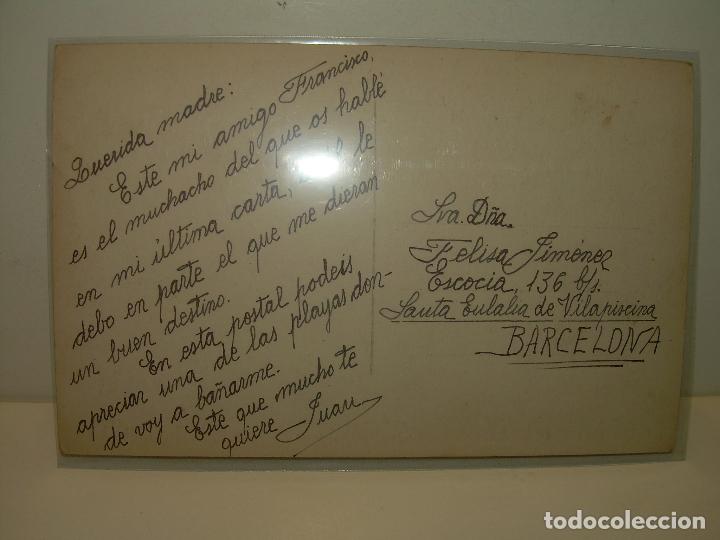 Querida madre:
Este mi amigo Francisco,
es el muchacho del que os hablé
en mi última carta, a él le
debo en parte el que me dieran
un buen destino.
En esta postal podeis
apreciar una de las playas don-
de voy a bañarme.
Este que mucho te
quiere Juan
Sra. Dña.
Felisa Jiménez
Escocia, 136 bjs.
Santa Eulalia de Vilapiscina
BARCELONA
todocoleccion